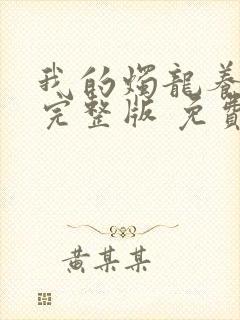 我的燭龍養
完整版 免費
黄某某